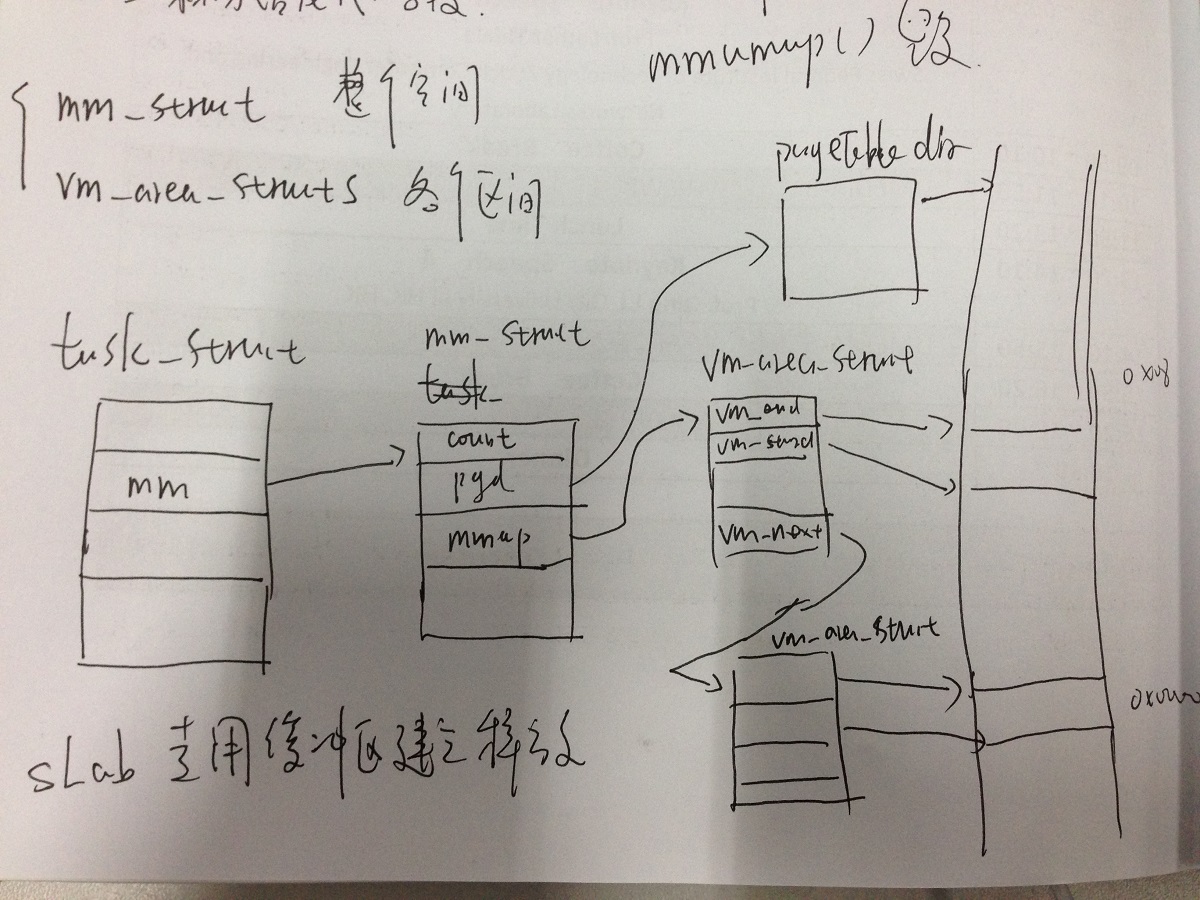 mmumap()
mm_struct 整个空间
vm_area_structs 各个区间
pageTable dir
task_struct
mm_struct
task_
vm_area_struct
0x08
count
pgd
mmap
mm
vm_end
vm_next
vm_area_struct
sLab 专用缓冲区建立